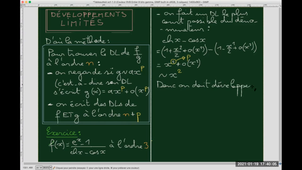 DÉVELOPPEMENTS
LIMITÉS
D'où la méthode:
Pour trouver le DL de f/g
à l'ordre n:
- on regarde si g ~ ax^p
(c'est à dire son DL
s'écrit g(x) = ax^p + o(x^p))
- on écrit des DLs de
f ET g à l'ordre n+p
Exercice:
f(x) = (e^x - 1)/(ch x - cos x) à l'ordre 3
On fait un DL le plus
court possible du déno-
minateur:
ch x - cos x
= x² + o(x²)
~ x²
Donc on doit développe